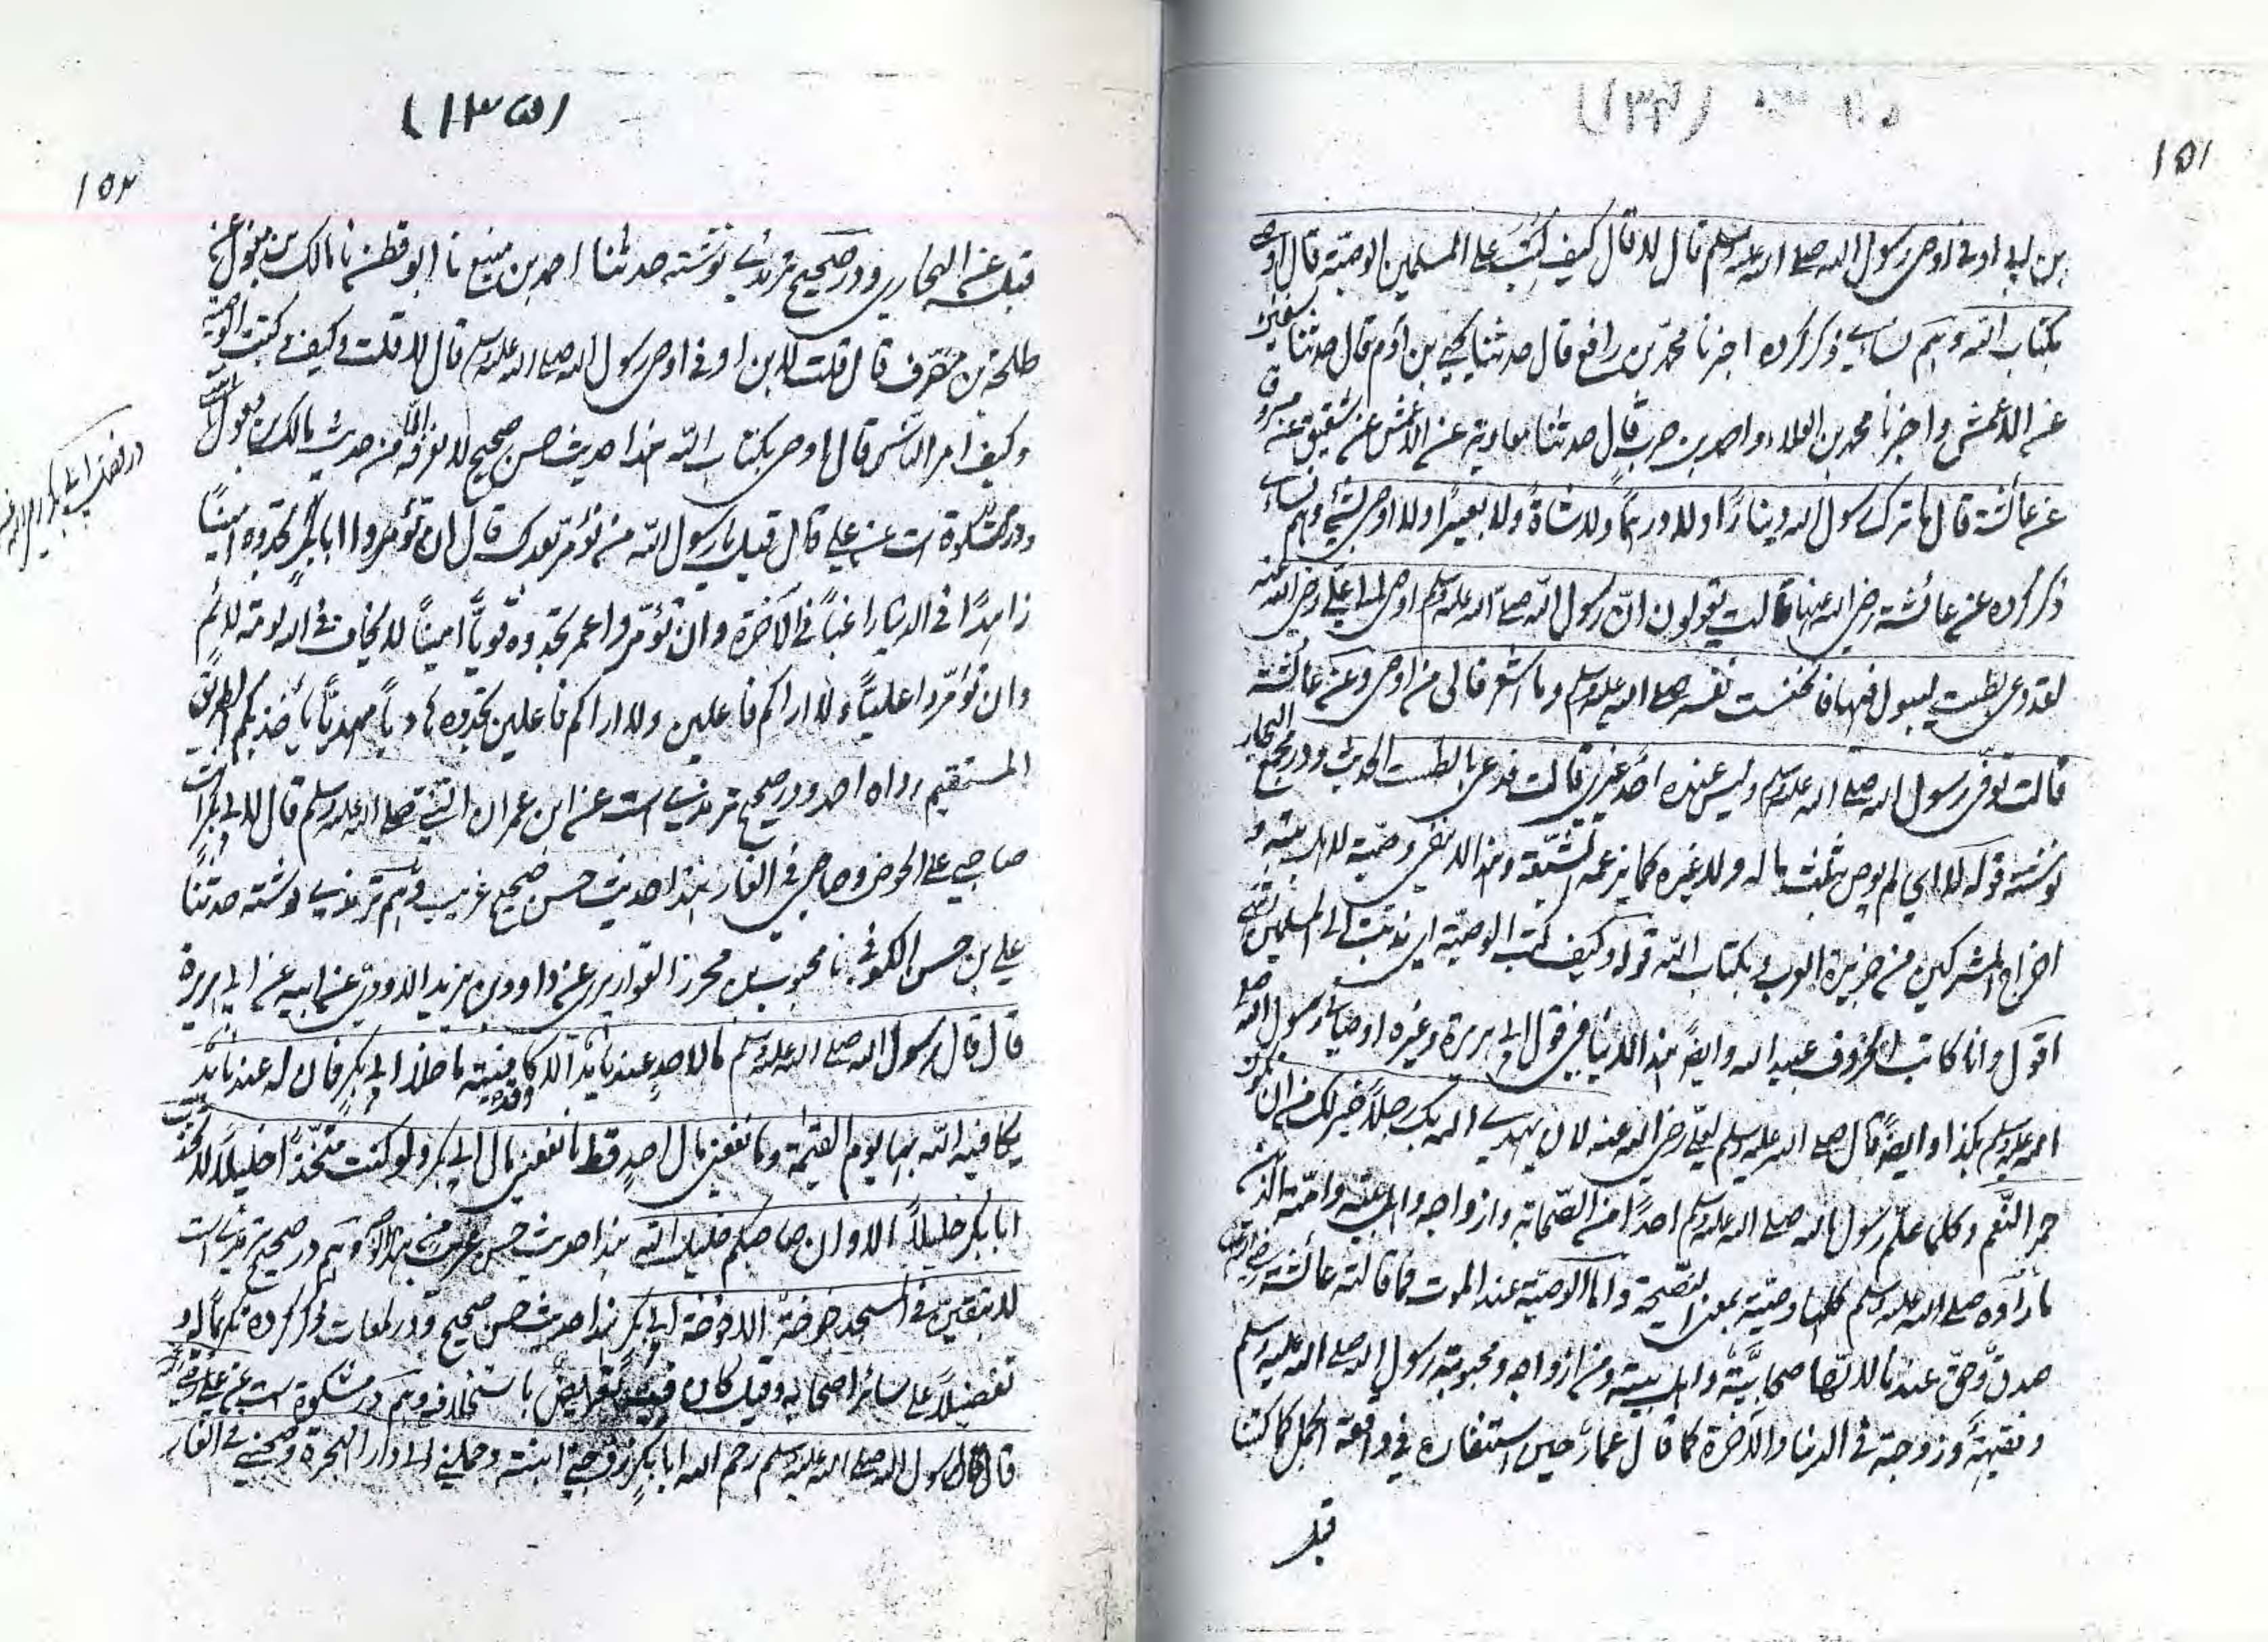 (۱۳۴)
۱۵۱
بن ابی اوفی اوصی رسول الله صلی الله علیه وسلم قال لا قال کیف کتب علی المسلمین الوصیة قال اوصی
بکتاب الله وهم نسایٔی ذکر کرده اخبرنا محمد بن رافع قال حدثنا یحیی بن آدم قال حدثنا
عن الاعمش واخبرنا محمد بن العلاء واحمد بن حرب قال حدثنا معاویة عن الاعمش عن شقیق عن مسروق
عن عائشة قال ما ترک رسول الله دینارًا ولا درهمًا ولا شاةً ولا بعیرًا ولا اوصی بشئ وهم نسایٔی
ذکر کرده عن عائشة رضی الله عنها قالت یقولون انّ رسول الله صلی الله علیه وسلم اوصی الی علی رضی الله عنه
لقد دعی بطست لیبول فیها فانخنثت نفسه صلی الله علیه وسلم وما اشعر فالی من اوصی وعن عائشة
قالت توفی رسول الله صلی الله علیه وسلم ولیس عنده احد غیری قالت ودعی بالطست الحدیث ودر مجمع البحار
نوشته قوله لا ای لم یوص بثلث ماله ولا غیره کما یزعمه الشیعة وهذا لا ینفی وصیة لاهل بیته و
اخراج المشرکین من جزیرة العرب وبکتاب الله قوله وکیف کتب الوصیة ای ندبت الی المسلمین
اقول وانا کاتب الحروف عبید الله وایضًا هذا لا ینافی قول ابی هریرة وغیره اوصانی رسول الله صلی
الله علیه وسلم بکذا وایضًا قال صلی الله علیه وسلم لعلی رضی الله عنه لان یهدی الله بک رجلاً خیر لک من ان یکون
حمر النّعم وکلما علّم رسول الله صلی الله علیه وسلم احدًا من الصّحابة وازواجه واهل بیته وامّته الذین
ما رأوه صلی الله علیه وسلم کلها وصیّة بمعنی النصیحة واما الوصیّة عند الموت فما قالته عائشة رضی الله عنها
صدق وحق عندنا لانّها صحابیّة واهل بیته ومن ازواجه ومحبوبة رسول الله صلی الله علیه وسلم
وفقیهة وزوجة فی الدنیا والآخرة کما قال عمار حین استنفاره فی واقعة الجمل کما کتبنا
قبل
(۱۳۵)
۱۵۲
قبل عن البخاری ودر صحیح ترمذی نوشته حدثنا احمد بن منیع نا ابو قطن نا مالک بن مغول عن
طلحة بن مصرف قال قلت لابن اوفی اوصی رسول الله صلی الله علیه وسلم قال لا قلت وکیف کتب الوصیة
وکیف امر الناس قال اوصی بکتاب الله هذا حدیث حسن صحیح لا نعرفه الّا من حدیث مالک بن مغول
ودر مشکوة است عن علی قال قیل یا رسول الله من نؤمر بعدک قال ان تؤمروا ابابکر تجدوه امینًا
زاهدًا فی الدنیا راغبًا فی الآخرة وان تؤمّروا عمر تجدوه قویًّا امینًا لا یخاف فی الله لومة لائم
وان تؤمّروا علیًّا ولا اراکم فاعلین ولا اراکم فاعلین تجدوه هادیًا مهدیًّا یأخذ بکم الطریق
المستقیم رواه احمد ودر صحیح ترمذی است عن ابن عمر ان النبی صلی الله علیه وسلم قال لابی بکر انت
صاحبی علی الحوض وصاحبی فی الغار هذا حدیث حسن صحیح غریب وهم ترمذی نوشته حدثنا
علی بن حسن الکوفی نا محبوب بن محرز القواریری عن داوود بن یزید الاودی عن ابیه عن ابی هریرة
قال قال رسول الله صلی الله علیه وسلم ما لاحد عندنا ید الّا وقد کافیته ما خلا ابی بکر فان له عندنا ید
یکافیه الله بها یوم القیمة وما نفعنی مال احد قط ما نفعنی مال ابی بکر ولو کنت متخذًا خلیلاً لاتخذت
ابابکر خلیلاً الا وان صاحبکم خلیل الله هذا حدیث حسن غریب من هذا الوجه وهم در صحیح ترمذی است
لا تبقین فی المسجد خوخة الا خوخة ابی بکر هذا حدیث حسن صحیح ودر لمعات ذکر کرده تکریمًا له و
تفضیلاً علی سائر اصحابه وقیل کان فیه تعریض باستخلافه وهم در مشکوة است عن علی رضی
قال قال رسول الله صلی الله علیه وسلم رحم الله ابابکر زوجنی ابنته وحملنی الی دار الهجرة وصحبنی فی الغار